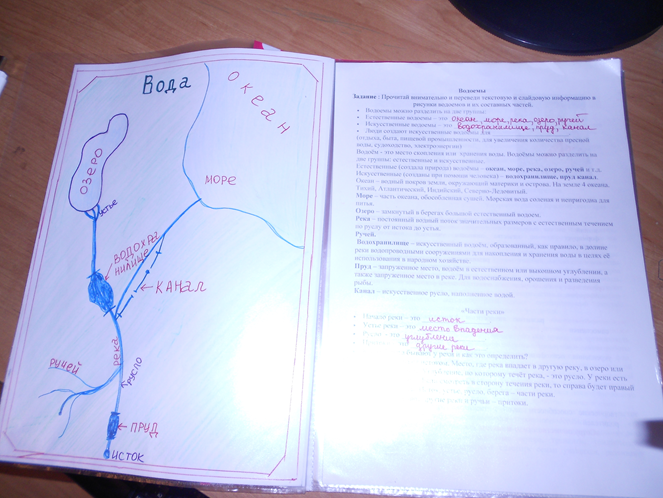 Вода
Океан
море
озеро
устье
водохранилище
канал
река
русло
ручей
пруд
исток
Водоемы
Задание : Прочитай внимательно и переведи текстовую и слайдовую информацию в
рисунки водоемов и их составных частей.
Водоемы можно разделить на две группы:
Естественные водоемы – это океан, море, река, озеро, ручей
Искусственные водоемы – это водохранилище, пруд, канал
Люди создают искусственные водоемы для
отдыха, быта, пищевой промышленности, для увеличения количества пресной
воды, судоходство, электроэнергия
Водоём - это место скопления или хранения воды. Водоёмы можно разделить на
две группы: естественные и искусственные.
Естественные (создала природа) водоёмы – океан, море, река, озеро, ручей и т.д.
Искусственные (созданы при помощи человека) – водохранилище, пруд канал.
Океан – водный покров земли, окружающий материки и острова. На земле 4 океана.
Тихий, Атлантический, Индийский, Северно-Ледовитый.
Море – часть океана, обособленная сушей. Морская вода соленая и непригодна для
питья.
Озеро – замкнутый в берегах большой естественный водоем.
Река – постоянный водный поток значительных размеров с естественным течением
по руслу от истока до устья.
Ручей.
Водохранилище – искусственный водоём, образованный, как правило, в долине
реки водопроводными сооружениями для накопления и хранения воды в целях её
использования в народном хозяйстве.
Пруд – запруженное место, водоём в естественном или выкопном углублении, а
также запруженное место в реке. Для водоснабжения, орошения и разведения
рыбы.
Канал – искусственное русло, наполненное водой.
«Части реки»
Начало реки – это исток
Устье реки – это место впадения
Русло – это углубление
другие реки
у реки и как это определить?
Место, где река впадает в другую реку, в озеро или
по которому течёт река, - это русло. У реки есть
в сторону течения реки, то справа будет правый
русло, берега – части реки.
реки и ручьи – притоки.